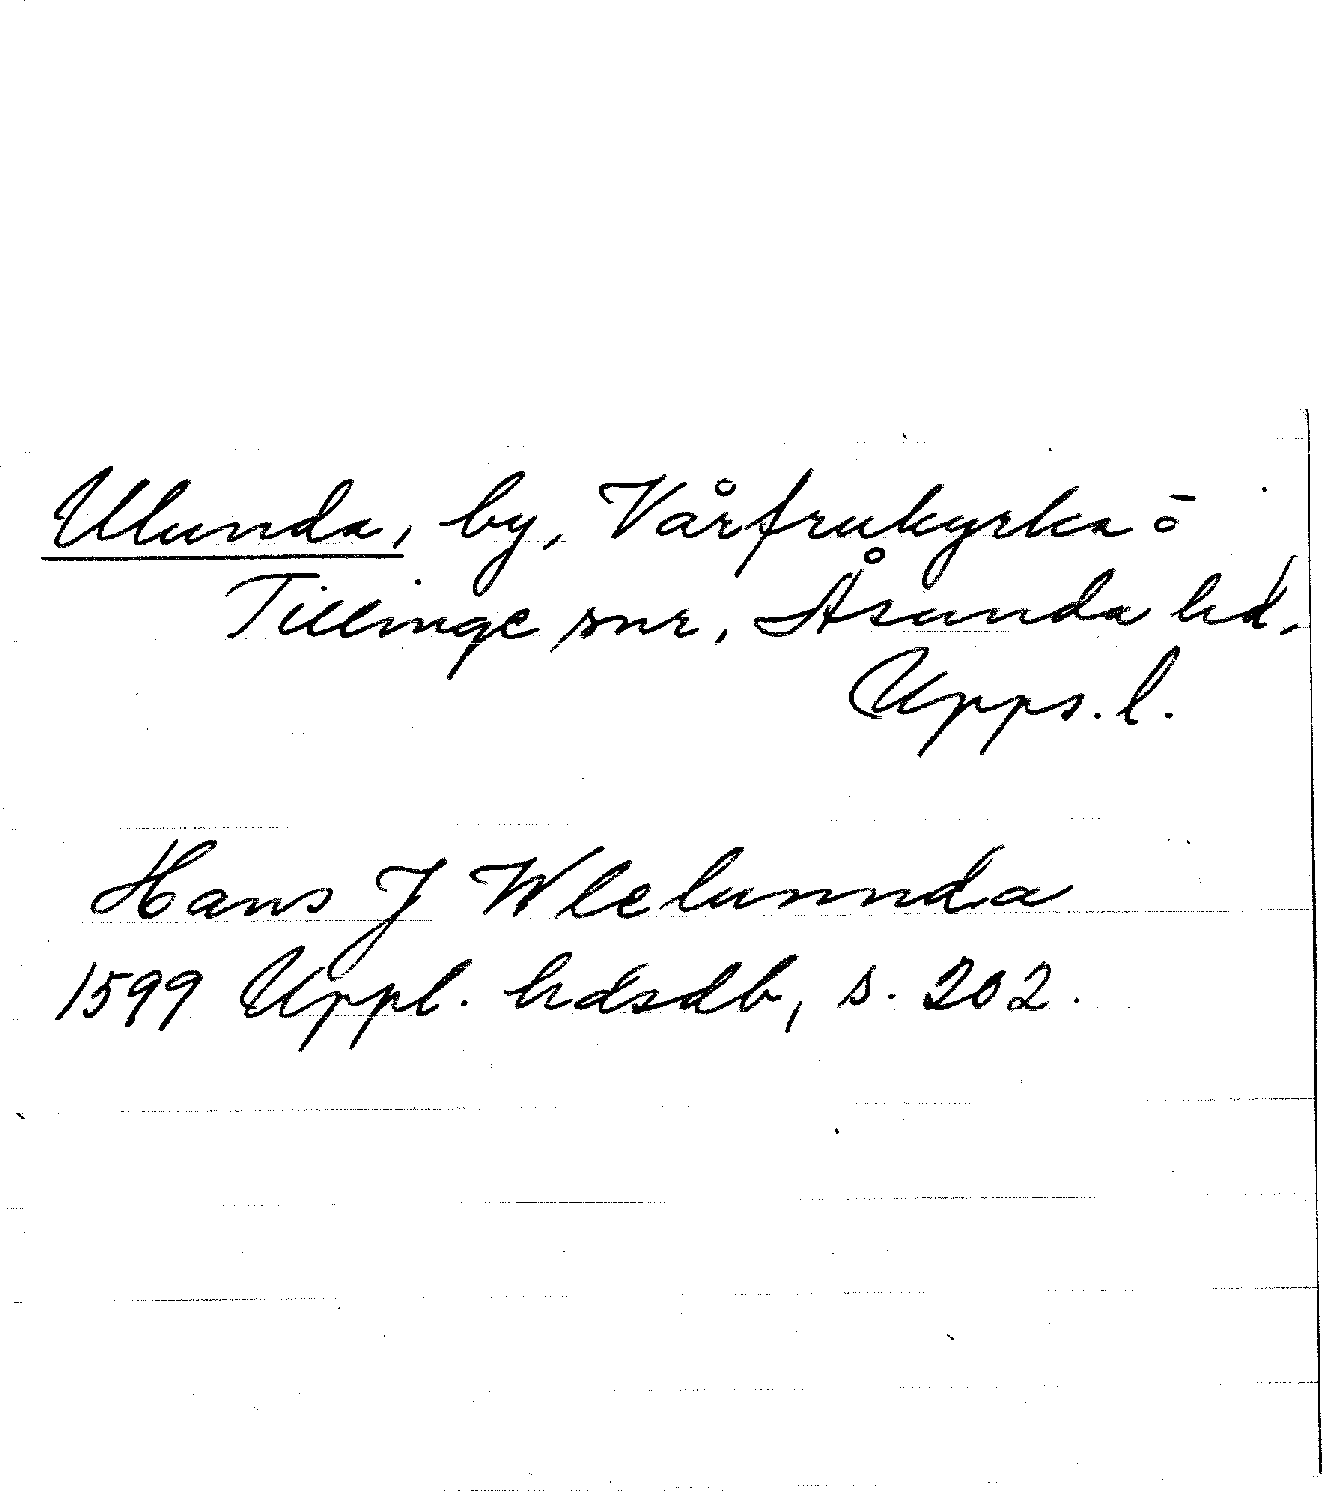 Ulunda, by, Vårfrukyrka o̅
Tillinge snr, Åsunda hd,
Upps. l.
Hans J Wlelunnda
1599 Uppl. hdsdb, s. 202.